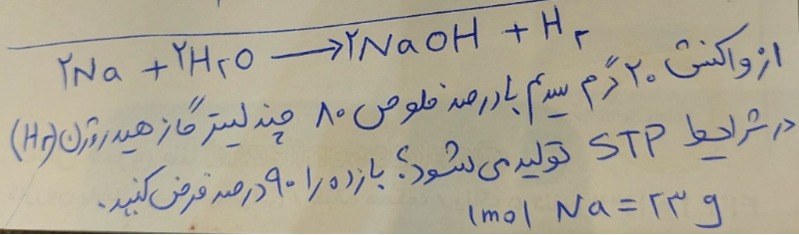 ۲Na + ۲H₂O ⟶ ۲NaOH + H₂
از واکنش ۲۰ گرم سدیم با درصد خلوص ۸۰ چند لیتر گاز هیدروژن (H₂)
در شرایط STP تولید می شود؟ بازده را ۹۰ درصد فرض کنید.
۱mol Na = ۲۳ g